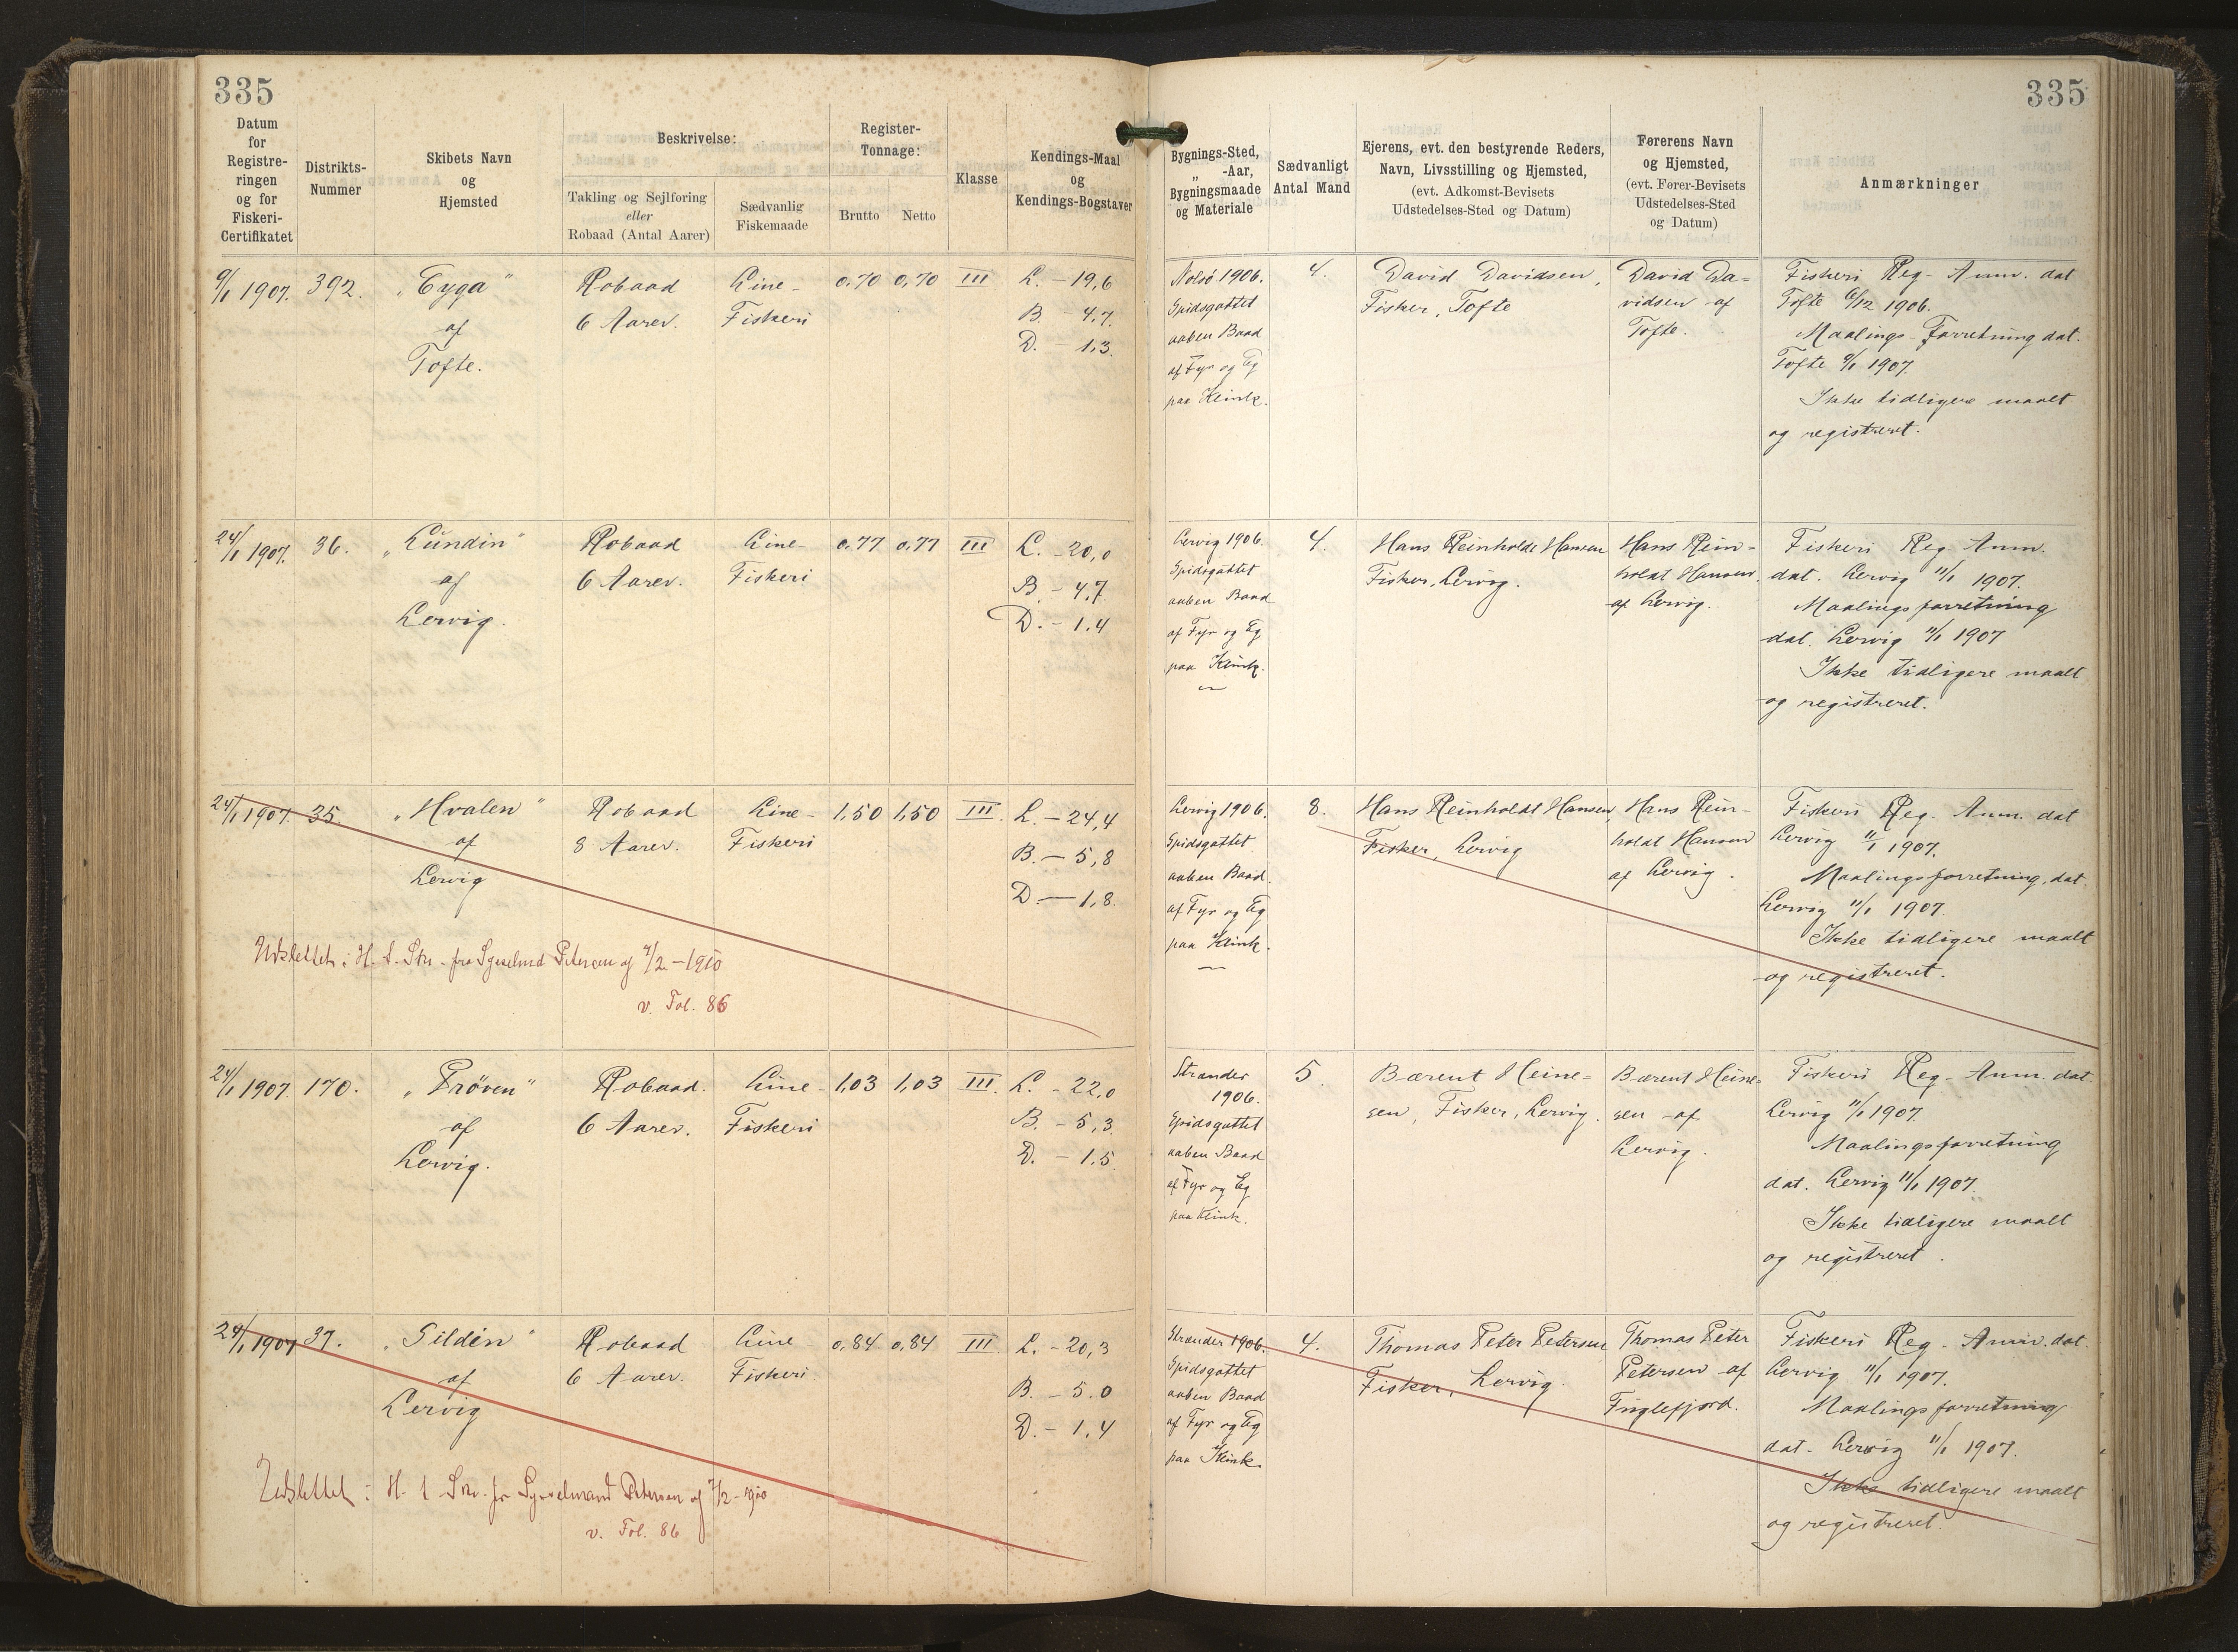 335
335
Datum
for
Registre-
ringen
og for
Fiskeri-
Certifikatet
Distrikts-
Nummer
Skibets Navn
og
Hjemsted
Beskrivelse:
Takling og Sejlføring
eller
Robaad (Antal Aarer)
Sædvanlig
Fiskemaade
Register-
Tonnage:
Brutto
Netto
Klasse
Kendings-Maal
og
Kendings-Bogstaver
Bygnings-Sted,
„ -Aar,
Bygningsmaade
og Materiale
Sædvanligt
Antal Mand
Ejerens, evt. den bestyrende Reders,
Navn, Livsstilling og Hjemsted,
(evt. Adkomst-Bevisets
Udstedelses-Sted og Datum)
Førerens Navn
og Hjemsted,
(evt. Fører-Bevisets
Udstedelses-Sted
og Datum)
Anmærkninger
9/1 1907.
392.
„Gyga"
af
Tofte.
Robaad
6 Aarer.
Line-
Fiskeri
0,70
0,70
III
L. - 19,6
B. - 4,7.
D. - 1,3.
Nolsö 1906.
Spidsgattet
aaben Baad
af Fyr og Eg
paa Klink.
4.
David Davidsen,
Fisker, Tofte
David Da-
vidsen af
Tofte.
Fiskeri Reg- Anm. dat
Tofte 6/12 1906.
Maalings-Forretning dat.
Tofte 9/1 1907.
Ikke tidligere maalt
og registreret.
24/1 1907.
36.
„Lundin"
af
Lervig.
Robaad
6 Aarer.
Line-
Fiskeri
0,77
0,77
III
L. - 20,0
B. - 4,7
D. - 1,4
Lervig 1906.
Spidsgattet
aaben Baad
af Fyr og Eg
paa Klink.
4.
Hans Reinholdt Hansen
Fisker, Lervig.
Hans Rein-
holdt Hansen.
af Lervig.
Fiskeri Reg- Anm.
dat. Lervig 11/1 1907.
Maalingsforretning
dat. Lervig 11/1 1907
Ikke tidligere maalt
og registreret.
24/1 1907.
35.
„Hvalen"
af
Lervig
Robaad
8 Aarer.
Line-
Fiskeri
1,50
1,50
III.
L. - 24,4
B. - 5,8
D. - 1,8.
Udslettet i H. t. Skr. fra Sysselmd Petersen af 7/2 - 1910
v. Fol. 86
Lervig 1906.
Spidsgattet
aaben Baad.
af Fyr og Eg
paa Klink.
8.
Hans Reinholdt Hansen,
Fisker, Lervig
Hans Rein-
holdt Hansen
af Lervig.
Fiskeri Reg. Anm. dat
Lervig 11/1 1907.
Maalingsforretning, dat.
Lervig 11/1 1907.
Ikke tidligere maalt
og registreret.
24/1 1907.
170.
„Pröven"
af
Lervig.
Robaad.
6 Aarer.
Line-
Fiskeri
1,03
1,03
III.
L. - 22,0
B. - 5,3
D. - 1,5.
Strander
1906.
Spidsgattet
aaben Baad
af Fyr og Eg
paa Klink.
5.
Bærent Heine=
sen, Fisker, Lervig.
Bærent Heine=
sen af
Lervig.
Fiskeri Reg- Anm. dat.
Lervig 11/1 1907.
Maalingsforretning
dat. Lervig 11/1 1907.
Ikke tidligere maalt
og registreret.
24/1 1907
37.
„Silden"
af
Lervig
Robaad
6 Aarer.
Line
Fiskeri.
0,84
0,84
III.
L. - 20,3
B. - 5.0
D. - 1,4
Udslettet i H. t. Skr. fr Sysselmand Petersen af 7/2 - 1910
v. Fol. 86
Strander 1906.
Spidsgattet
aaben Baad
af Fyr og Eg
paa Klink.
4.
Thomas Peter Petersen
Fisker, Lervig.
Thomas Peter
Petersen af
Fuglefjord.
Fiskeri Reg- Anm. dat.
Lervig 11/1 1907.
Maalingsforretning
dat. Lervig 11/1 1907.
Ikke tidligere maalt
og registreret.